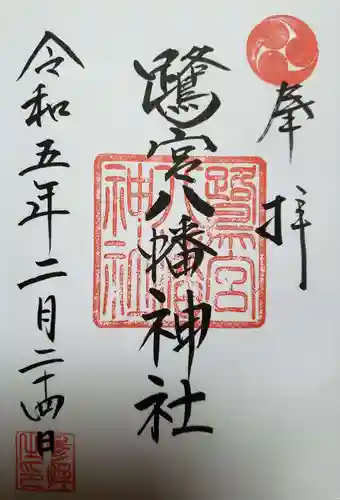 奉拝
鷺宮八幡神社
令和五年二月二十四日
鷺宮八幡神社